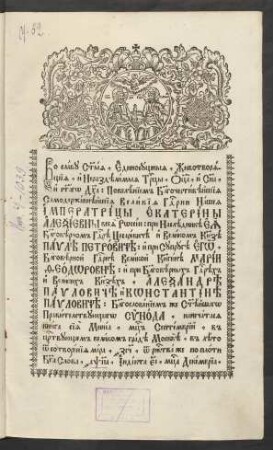 Во славу Ст҃ыѧ, Єдиносꙋщныѧ, Животворѧ-
щїѧ, и Нераздѣлимыѧ Трⷪ҇цы, Ѻц҃а, и Сн҃а,
и ст҃агѡ Дх҃а: Повелѣнїемъ Бл҃гочестивѣйшїѧ
Самодержавнѣйшїѧ Великїѧ Гдⷭ҇рни Нашеѧ
ІМПЕРАТРИЦЫ ЕКАТЕРИНЫ
АЛЕѮІЕВНЫ всеѧ Рѡссїи: при Наслѣдникѣ ЕѦ
Бл҃говѣрномъ Гдⷭ҇рѣ Цесаревичѣ и Великомъ Кнѧзѣ
ПАВЛѢ ПЕТРОВИЧѢ: и при Сꙋпрꙋгѣ ЕГѠ,
Бл҃говѣрной Гдⷭ҇рнѣ Великой Кнѧгинѣ МАРІИ
ѲЕОДѠРОВНѢ: и при Бл҃говѣрныхъ Гдⷭ҇рѣхъ
и Великихъ Кнѧзѣхъ, АЛЕѮАНДРѢ
ПАВЛОВИЧѢ и КѠНСТАНТІНѢ
ПАВЛОВИЧѢ: Бл҃гословенїемъ же Ст҃ѣйшагѡ
Правительствꙋющагѡ СѴНОДА: напечатасѧ
книга сїѧ Минїа, мцⷭ҇ъ Септемврїй, въ
црⷭ҇твꙋющемъ великомъ градѣ Москвѣ, въ лѣто
ѿ сотворенїѧ мїра, ѿ ржⷭ҇тва же по плоти
Бг҃а Слова, Індїкта мцⷭ҇а Декемврїа.